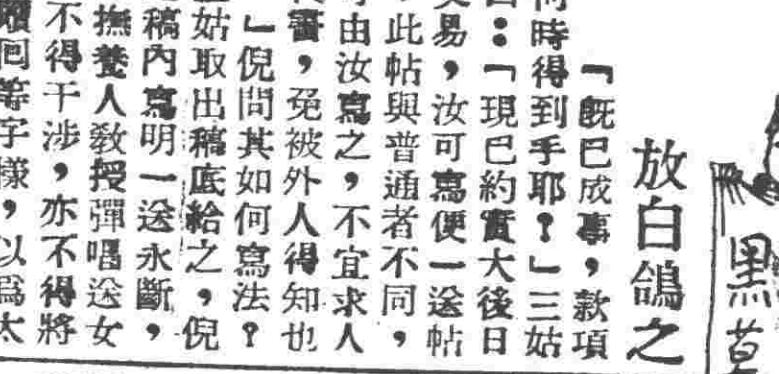 黑
放白鴿之
「既已成事，款項
何時得到手耶？」三姑
曰：「現已約實大後日
交易，汝可寫便一送帖
此帖與普通者不同，
由汝寫之，不宜求人
書，免被外人得知也
」倪問其如何寫法？
姑取出稿底給之，倪
稿內寫明一送永斷，
撫養人敎授彈唱送女
不得干涉，亦不得將
贖回等字樣，以爲太